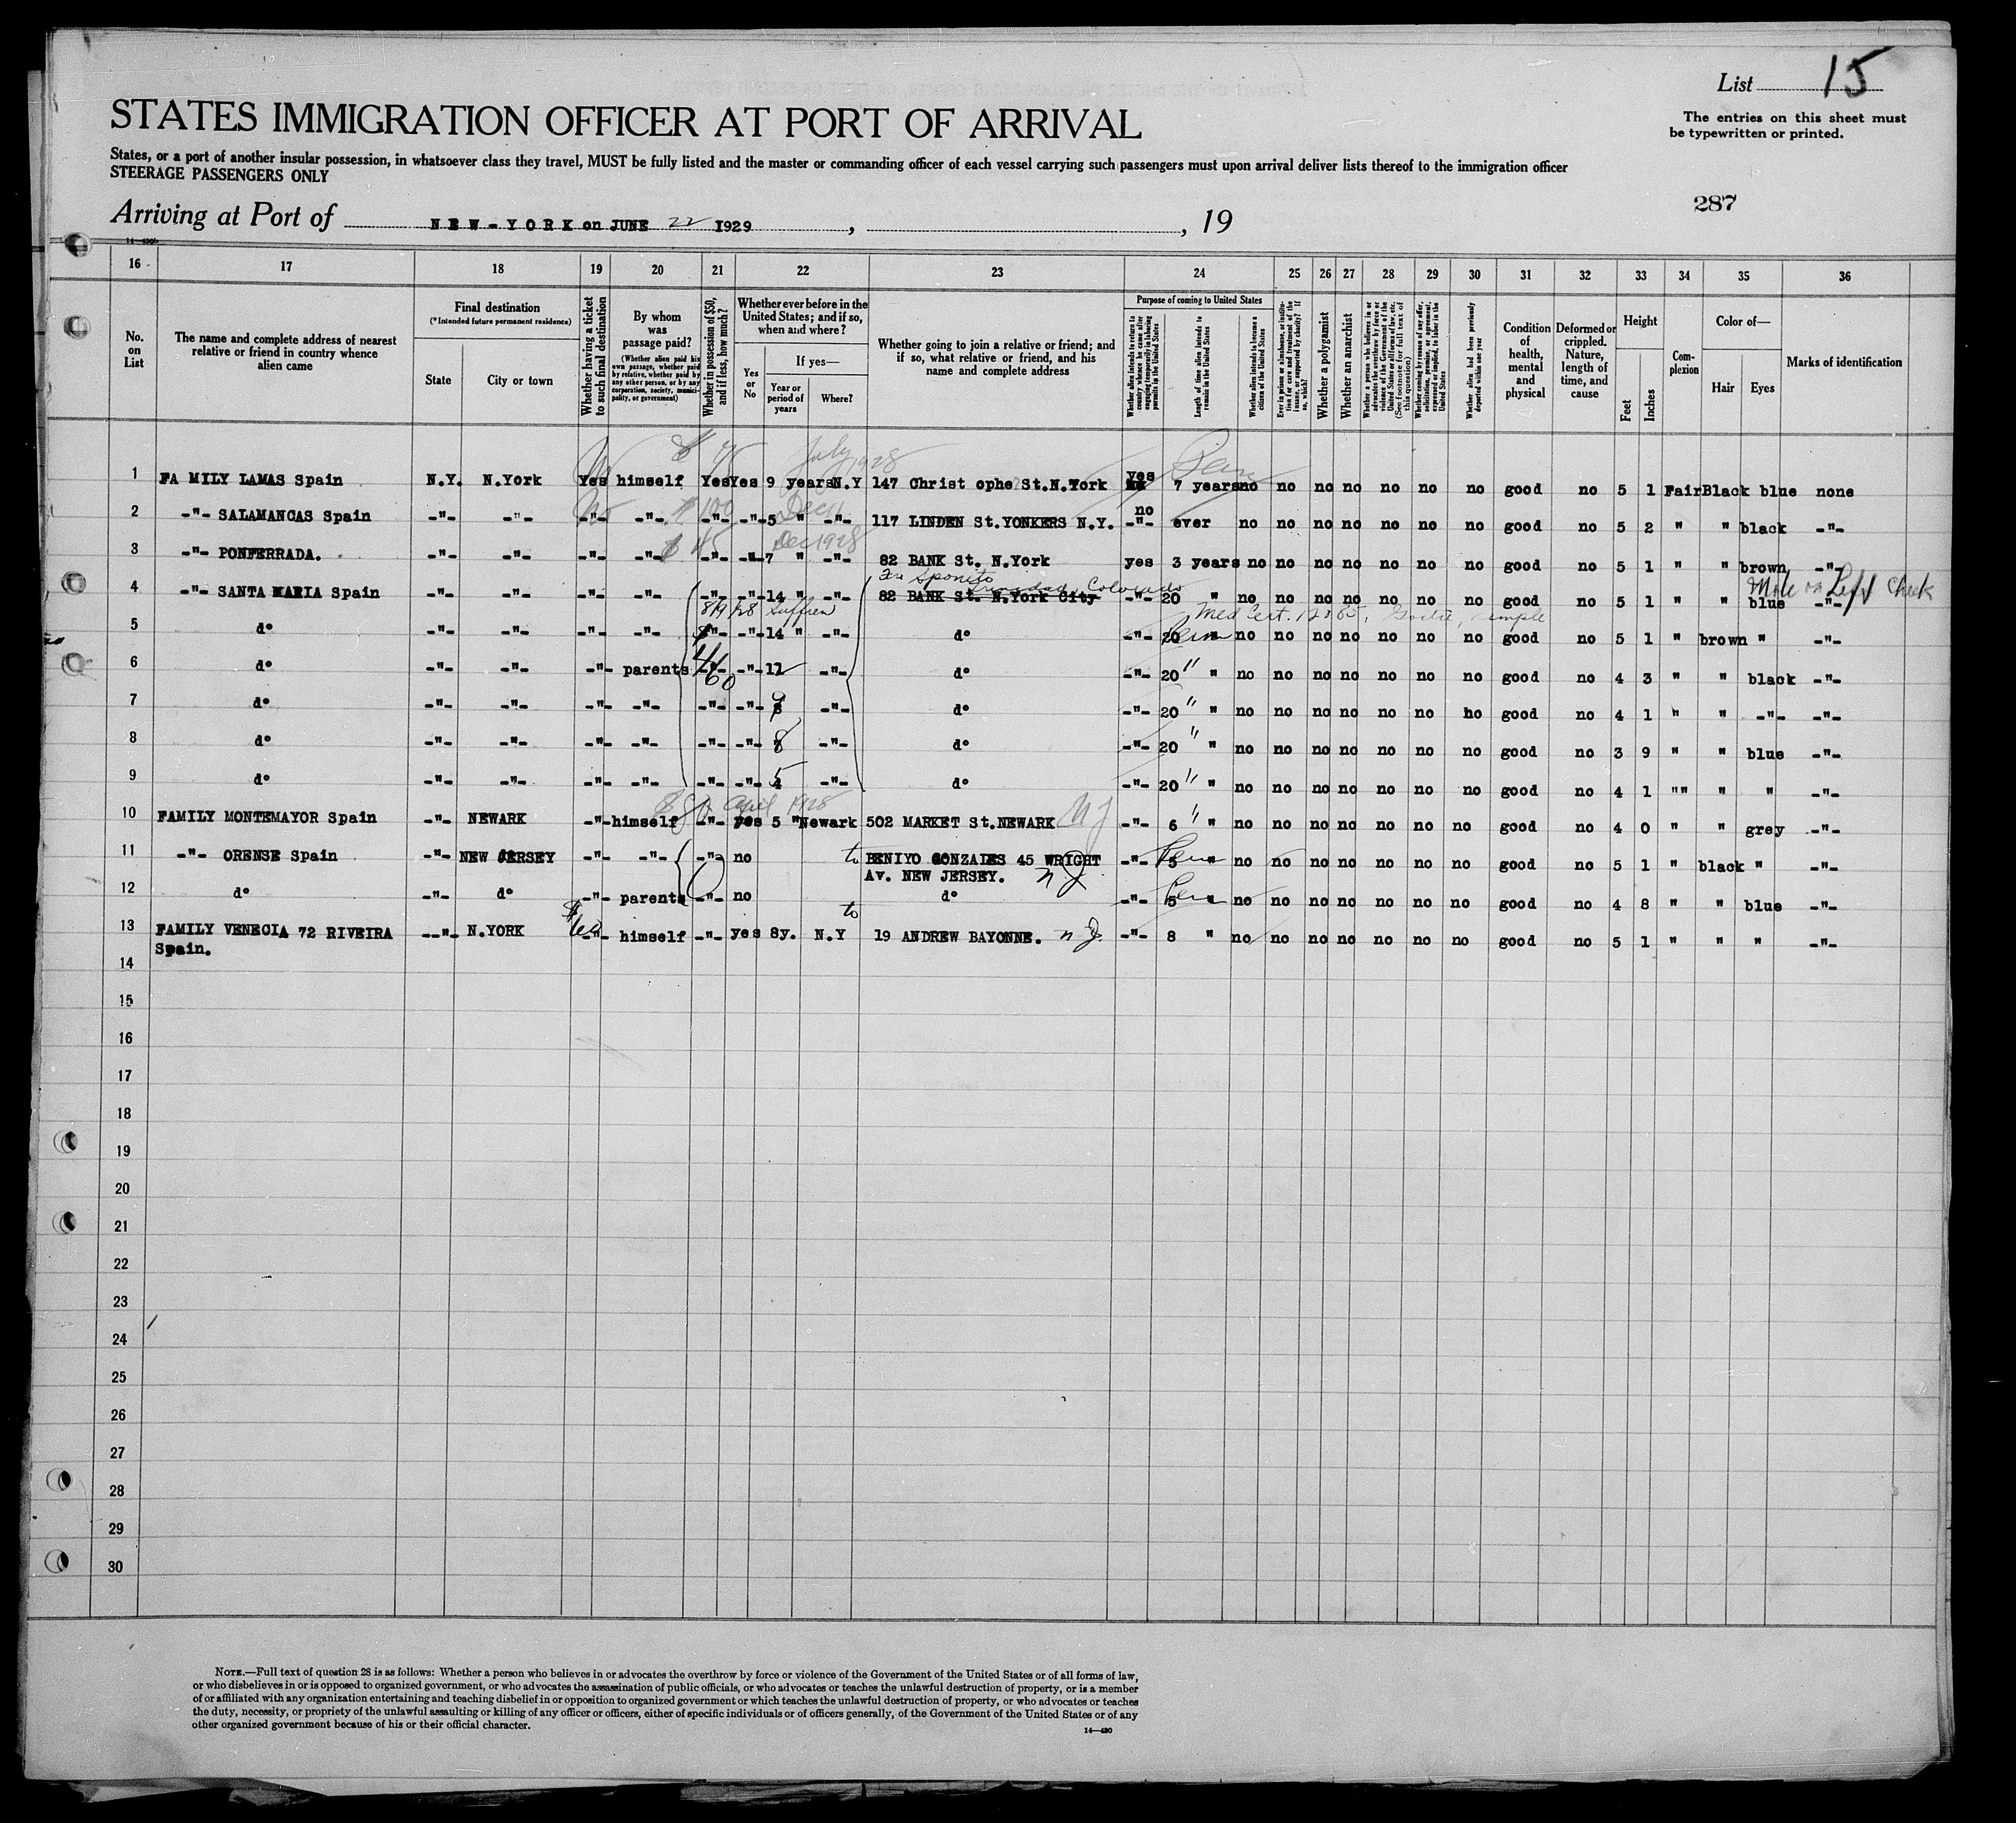 List 15
The entries on this sheet must
be typewritten or printed.
STATES IMMIGRATION OFFICER AT PORT OF ARRIVAL
States, or a port of another insular possession, in whatsoever class they travel, MUST be fully listed and the master or commanding officer of each vessel carrying such passengers must upon arrival deliver lists thereof to the immigration officer
STEERAGE PASSENGERS ONLY
287
Arriving at Port of NEW-YORK on JUNE 22 1929, , 19
16 17 18 19 20 21 22 23 24 25 26 27 28 29 30 31 32 33 34 35 36
No. on List
The name and complete address of nearest relative or friend in country whence alien came
Final destination
(*Intended future permanent residence)
State
City or town
Whether having a ticket to such final destination
By whom was passage paid?
(Whether alien paid his own passage, whether paid by relative, whether paid by any other person, or by any corporation, society, municipality, or government)
Whether in possession of $50, and if less, how much?
Whether ever before in the United States; and if so, when and where?
Yes or No
If yes—
Year or period of years
Where?
Whether going to join a relative or friend; and if so, what relative or friend, and his name and complete address
Purpose of coming to United States
Whether alien intends to return to country whence he came after engaging temporarily in laboring pursuits in the United States
Length of time alien intends to remain in the United States
Whether alien intends to become a citizen of the United States
Ever in prison or almshouse, or institution for care and treatment of the insane, or supported by charity? If so, which?
Whether a polygamist
Whether an anarchist
Whether a person who believes in or advocates the overthrow by force or violence of the Government of the United States or all forms of law, etc. (See footnote for full text of this question)
Whether coming by reason of any offer, solicitation, promise, or agreement, expressed or implied, to labor in the United States
Whether alien had been previously deported within one year
Condition of health, mental and physical
Deformed or crippled. Nature, length of time, and cause
Height
Feet
Inches
Complexion
Color of—
Hair
Eyes
Marks of identification
$ 75 July 1928
1 FA MILY LAMAS Spain N.Y. N.York Yes himself Yes Yes 9 years N.Y 147 Christ ophe St.N.York yes 7 years no no no no no no no good no 5 1 Fair Black blue none
No $100 Dec
2 -"- SALAMANCAS Spain -"- -"- -"- -"- -"- -"- 5 " -"- 117 LINDEN St.YONKERS N.Y. no -"- ever no no no no no no no good no 5 2 " " black -"-
$ 45 Dec 1928
3 -"- PONFERRADA. -"- -"- -"- -"- -"- -"- 7 " -"- 82 BANK St. N.York yes 3 years no no no no no no no good no 5 1 " " brown -"-
Trinidad, Colorado
4 -"- SANTA MARIA Spain -"- -"- -"- -"- -"- -"- 14 " -"- 82 BANK St. N.York City -"- 20 " no no no no no no no good no 5 1 " " blue -"-
Mole on Left Cheek
8/9/28 Suffren
Med Cert.
5 d° -"- -"- -"- -"- -"- -"- 14 " -"- d° -"- 20 " no no no no no no no good no 5 1 " brown " -"-
6 d° -"- -"- -"- parents -"- -"- 11 -"- d° -"- 20 " no no no no no no no good no 4 3 " " black -"-
7 d° -"- -"- -"- -"- -"- -"- 9 -"- d° -"- 20 " no no no no no no no good no 4 1 " " -"- -"-
8 d° -"- -"- -"- -"- -"- -"- 8 -"- d° -"- 20 " no no no no no no no good no 3 9 " " blue -"-
9 d° -"- -"- -"- -"- -"- -"- 5 -"- d° -"- 20 " no no no no no no no good no 4 1 "" " " -"-
April 1928
10 FAMILY MONTEMAYOR Spain -"- NEWARK -"- himself -"- yes 5 " Newark 502 MARKET St.NEWARK NJ -"- 6 " no no no no no no no good no 4 0 " " grey -"-
11 -"- ORENSE Spain -"- NEW JERSEY -"- -"- -"- no to BENIYO GONZALES 45 WRIGHT -"- 5 " no no no no no no no good no 5 1 " black " -"-
Av. NEW JERSEY. NJ
12 d° -"- d° -"- parents -"- no d° -"- 5 " no no no no no no no good no 4 8 " " blue -"-
to
13 FAMILY VENECIA 72 RIVEIRA -"- N.YORK -"- himself -"- yes 8y. N.Y 19 ANDREW BAYONNE. NJ. -"- 8 " no no no no no no no good no 5 1 " " " -"-
Spain.
14
15
16
17
18
19
20
21
22
23
24
25
26
27
28
29
30
NOTE.—Full text of question 28 is as follows: Whether a person who believes in or advocates the overthrow by force or violence of the Government of the United States or of all forms of law,
or who disbelieves in or is opposed to organized government, or who advocates the assassination of public officials, or who advocates or teaches the unlawful destruction of property, or is a member
of or affiliated with any organization entertaining and teaching disbelief in or opposition to organized government or which teaches the unlawful destruction of property, or who advocates or teaches
the duty, necessity, or propriety of the unlawful assaulting or killing of any officer or officers, either of specific individuals or of officers generally, of the Government of the United States or of any
other organized government because of his or their official character.
14—430